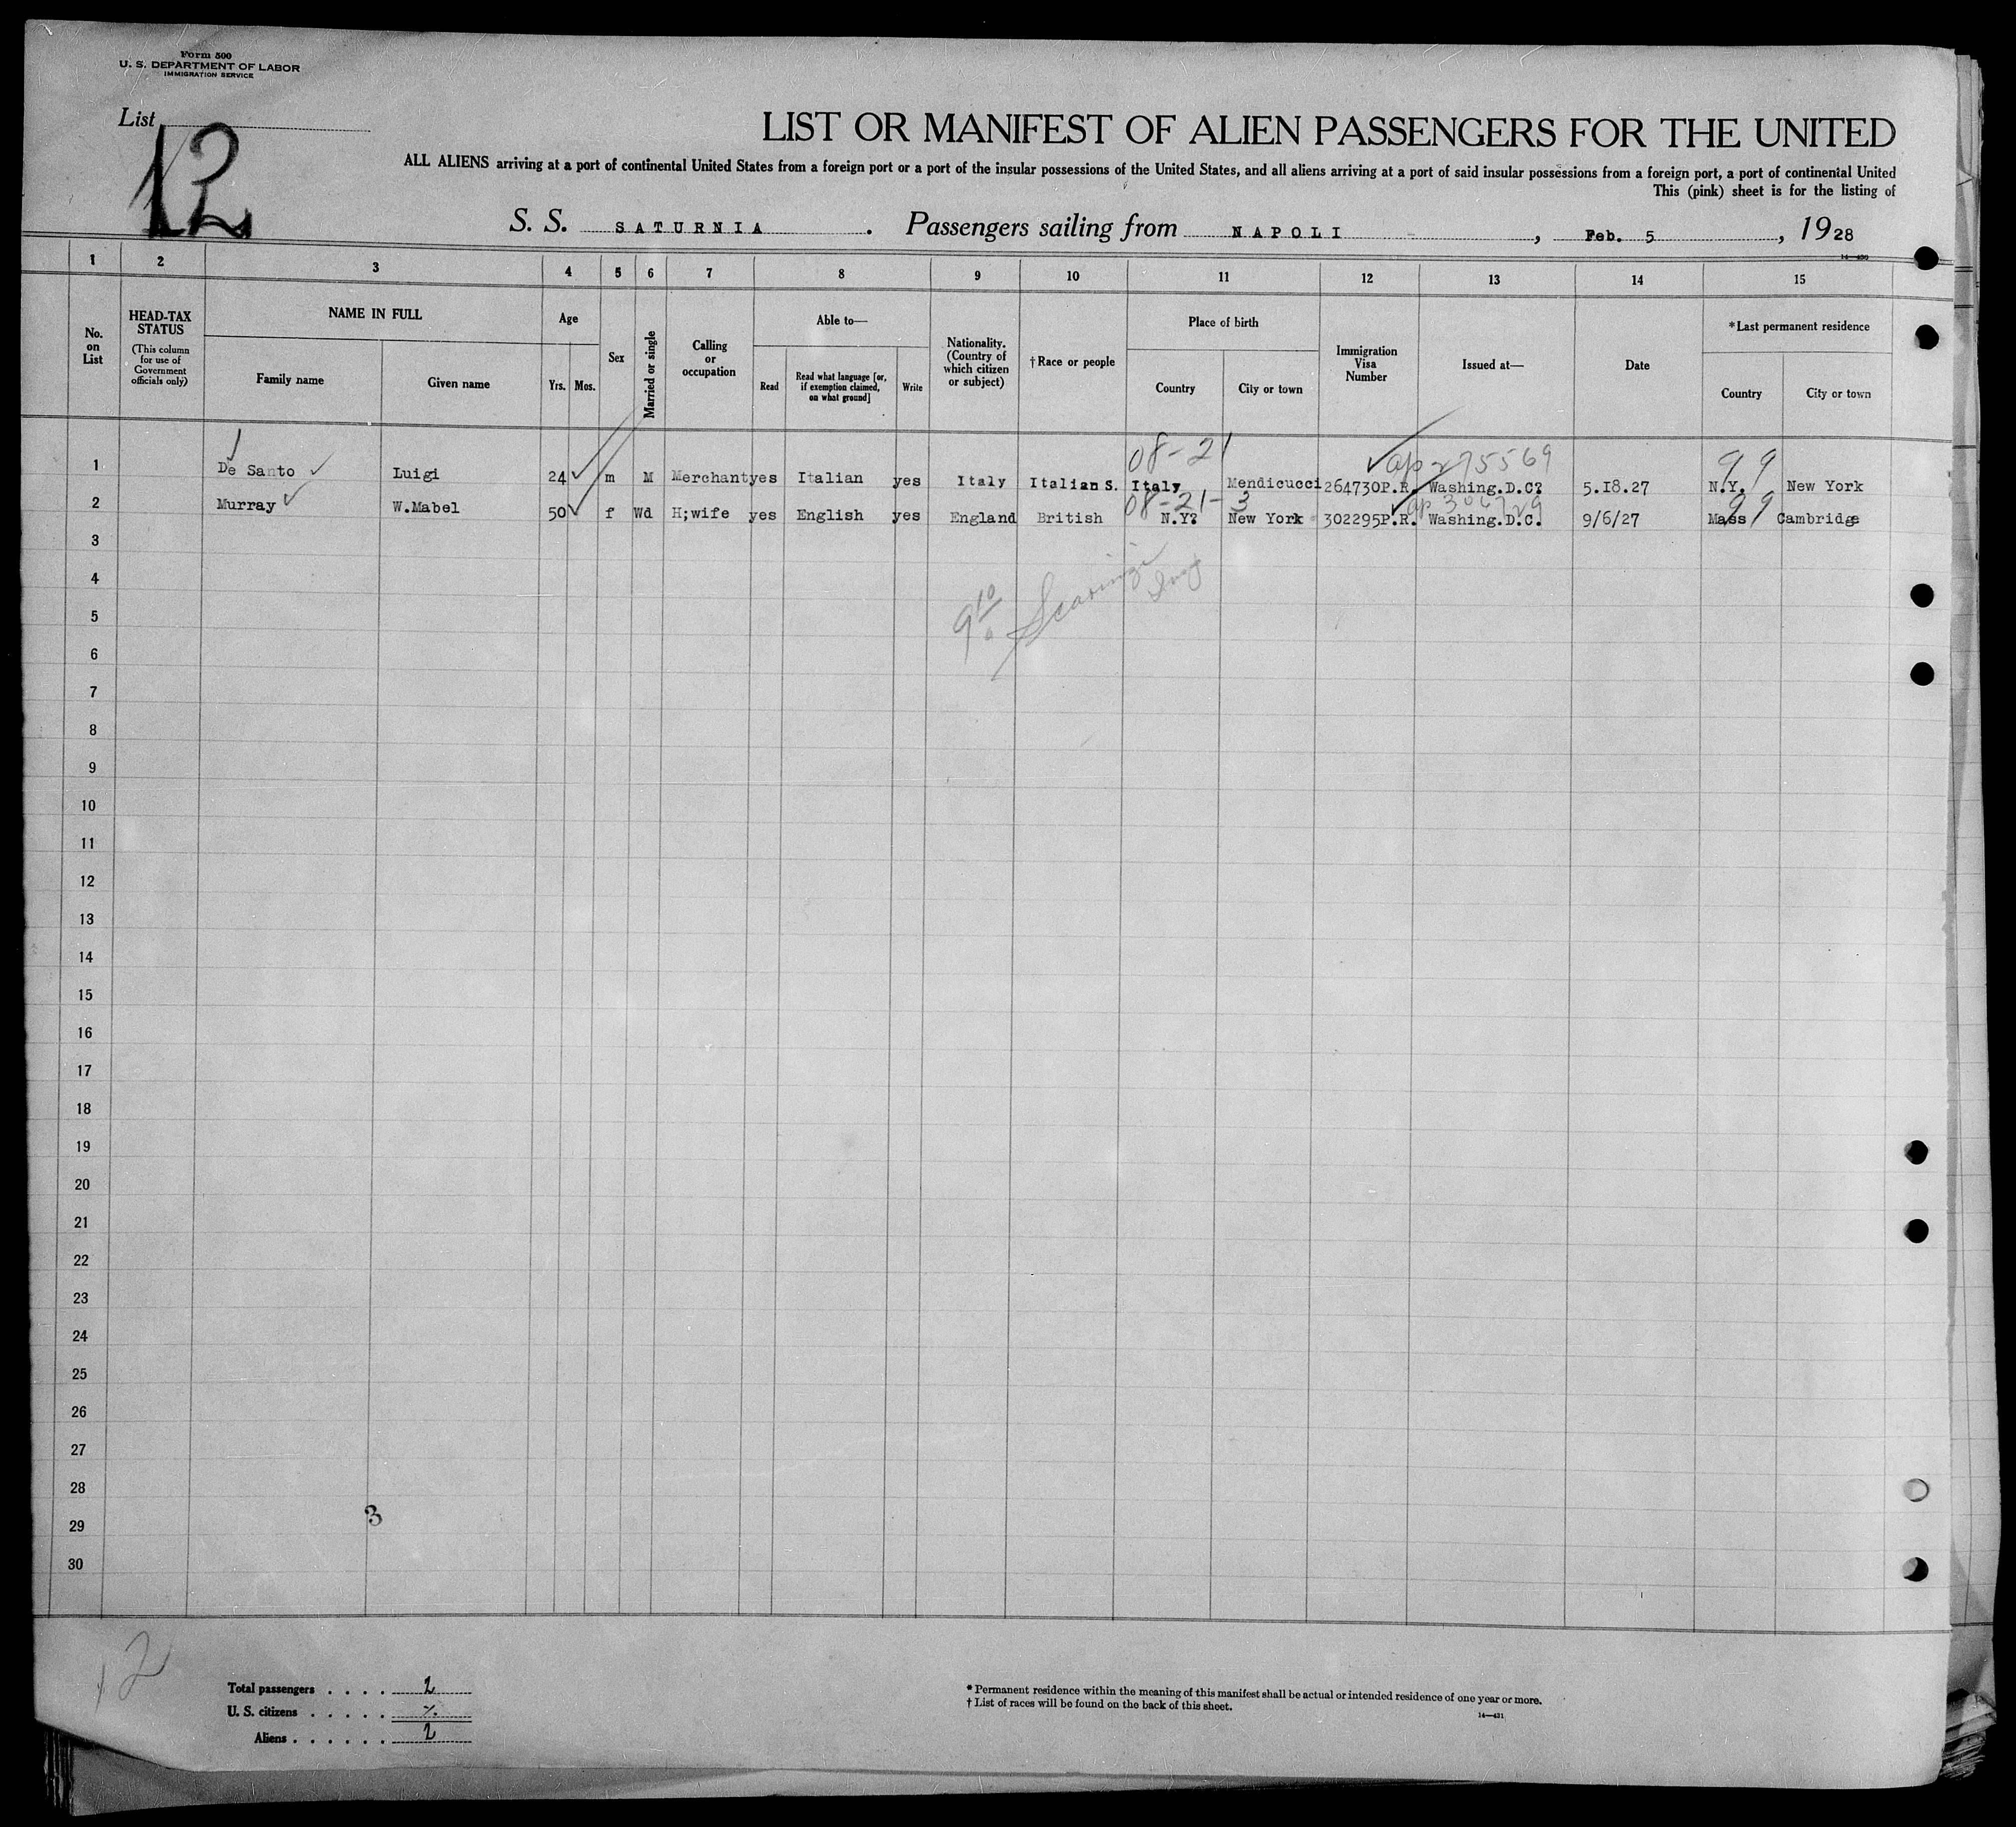 Form 500
U. S. DEPARTMENT OF LABOR
IMMIGRATION SERVICE
List
12
LIST OR MANIFEST OF ALIEN PASSENGERS FOR THE UNITED
ALL ALIENS arriving at a port of continental United States from a foreign port or a port of the insular possessions of the United States, and all aliens arriving at a port of said insular possessions from a foreign port, a port of continental United
This (pink) sheet is for the listing of
S. S. SATURNIA . Passengers sailing from NAPOLI , Feb. 5 , 1928
14—430
1 2 3 4 5 6 7 8 9 10 11 12 13 14 15
No. on List
HEAD-TAX STATUS
(This column for use of Government officials only)
NAME IN FULL
Family name Given name
Age
Yrs. Mos.
Sex
Married or single
Calling or occupation
Able to—
Read Read what language [or, if exemption claimed, on what ground] Write
Nationality. (Country of which citizen or subject)
†Race or people
Place of birth
Country City or town
Immigration Visa Number
Issued at—
Date
*Last permanent residence
Country City or town
08-21 ap 275569 99
1 De Santo Luigi 24 m M Merchant yes Italian yes Italy Italian S. Italy Mendicucci 264730P.R. Washing.D.C? 5.18.27 N.Y. New York
08-21-3 99
2 Murray W.Mabel 50 f Wd H;wife yes English yes England British N.Y? New York 302295P.R. Washing.D.C. 9/6/27 Mass Cambridge
3
4
5
6
7
8
9
10
11
12
13
14
15
16
17
18
19
20
21
22
23
24
25
26
27
28
29
30
3
12
Total passengers . . . . 2
U. S. citizens . . . . .
Aliens . . . . . . 2
* Permanent residence within the meaning of this manifest shall be actual or intended residence of one year or more.
† List of races will be found on the back of this sheet.
14—431